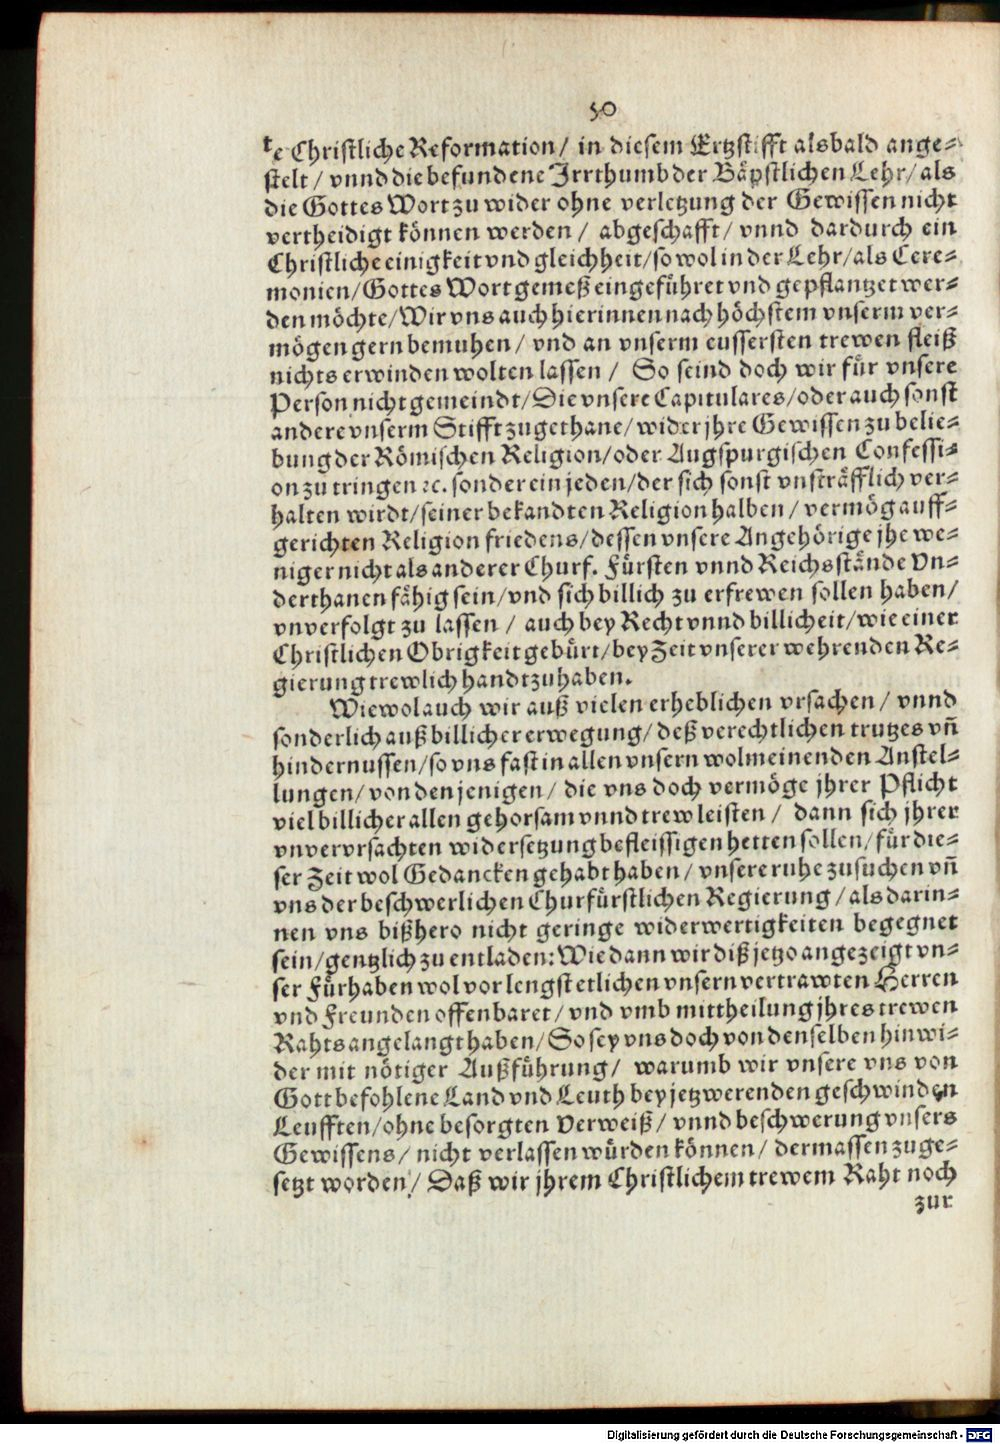 50
te Christliche Reformation/ in diesem Ertzstifft alsbald ange-
stelt/ vnnd die befundene Irrthumb der Bäpstlichen Lehr/ als
die Gottes Wort zu wider ohne verletzung der Gewissen nicht
vertheidigt können werden/ abgeschafft/ vnnd dardurch ein
Christliche einigkeit vnd gleichheit/ so wol in der Lehr/ als Cere-
monien/ Gottes Wort gemeß eingeführet vnd gepflantzet wer-
den möchte/ Wir vns auch hierinnen nach höchstem vnserm ver-
mögen gern bemuhen/ vnd an vnserm eussersten trewen fleiß
nichts erwinden wolten lassen/ So seind doch wir für vnsere
Person nicht gemeindt/ Die vnsere Capitulares/ oder auch sonst
andere vnserm Stifft zugethane/ wider jhre Gewissen zu belie-
bung der Römischen Religion/ oder Augspurgischen Confessi-
on zu tringen ꝛc. sonder ein jeden/ der sich sonst vnsträfflich ver-
halten wirdt/ seiner bekandten Religion halben/ vermög auff-
gerichten Religion friedens/ dessen vnsere Angehörige jhe we-
niger nicht als anderer Churf. Fürsten vnnd Reichsstände Vn-
derthanen fähig sein/ vnd sich billich zu erfrewen sollen haben/
vnverfolgt zu lassen/ auch bey Recht vnnd billicheit/ wie einer
Christlichen Obrigkeit gebürt/ bey Zeit vnserer wehrenden Re-
gierung trewlich handtzuhaben.
Wiewol auch wir auß vielen erheblichen vrsachen/ vnnd
sonderlich auß billicher erwegung/ deß verechtlichen trutzes vñ
hindernussen/ so vns fast in allen vnsern wolmeinenden Anstel-
lungen/ von denjenigen/ die vns doch vermöge jhrer Pflicht
viel billicher allen gehorsam vnnd trew leisten/ dann sich jhrer
vnvervrsachten widersetzung befleissigen hetten sollen/ für die-
ser Zeit wol Gedancken gehabt haben/ vnsere ruhe zusuchen vñ
vns der beschwerlichen Churfürstlichen Regierung/ als darin-
nen vns bißhero nicht geringe widerwertigkeiten begegnet
sein/ gentzlich zu entladen: Wie dann wir diß jetzo angezeigt vn-
ser Fürhaben wol vor lengst etlichen vnsern vertrawten Herren
vnd Freunden offenbaret/ vnd vmb mittheilung jhres trewen
Rahts angelangt haben/ So sey vns doch von denselben hinwi-
der mit nötiger Außführung/ warumb wir vnsere vns von
Gott befohlene Land vnd Leuth bey jetzwerenden geschwinden
Leufften/ ohne besorgten Verweiß/ vnnd beschwerung vnsers
Gewissens/ nicht verlassen würden können/ dermassen zuge-
setzt worden/ Daß wir jhrem Christlichem trewem Raht noch
zur
Digitalisierung gefördert durch die Deutsche Forschungsgemeinschaft - DFG